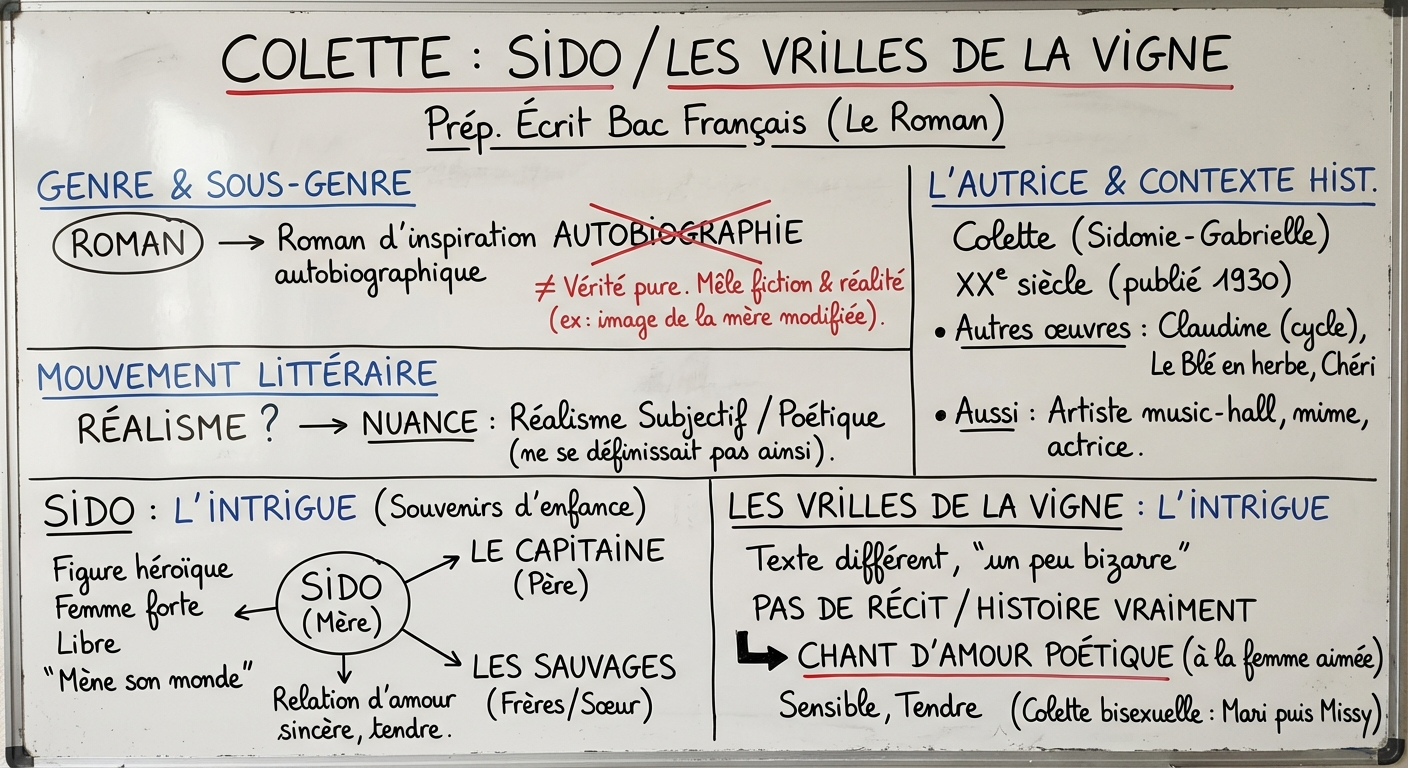 COLETTE : SIDO / LES VRILLES DE LA VIGNE
Prép. Écrit Bac Français (Le Roman)
GENRE & SOUS-GENRE
ROMAN → Roman d'inspiration AUTOBIOGRAPHIE
autobiographique
≠ Vérité pure. Mêle fiction & réalité
(ex : image de la mère modifiée).
MOUVEMENT LITTÉRAIRE
RÉALISME ? → NUANCE : Réalisme Subjectif / Poétique
(ne se définissait pas ainsi).
L'AUTRICE & CONTEXTE HIST.
Colette (Sidonie-Gabrielle)
XXe siècle (publié 1930)
• Autres œuvres : Claudine (cycle),
Le Blé en herbe, Chéri
• Aussi : Artiste music-hall, mime,
actrice.
SIDO : L'INTRIGUE (Souvenirs d'enfance)
Figure héroïque
Femme forte
Libre
"Mène son monde"
SIDO
(Mère)
LE CAPITAINE
(Père)
LES SAUVAGES
(Frères/Sœur)
Relation d'amour
sincère, tendre.
LES VRILLES DE LA VIGNE : L'INTRIGUE
Texte différent, "un peu bizarre"
PAS DE RÉCIT / HISTOIRE VRAIMENT
CHANT D'AMOUR POÉTIQUE (à la femme aimée)
Sensible, Tendre (Colette bisexuelle : Mari puis Missy).